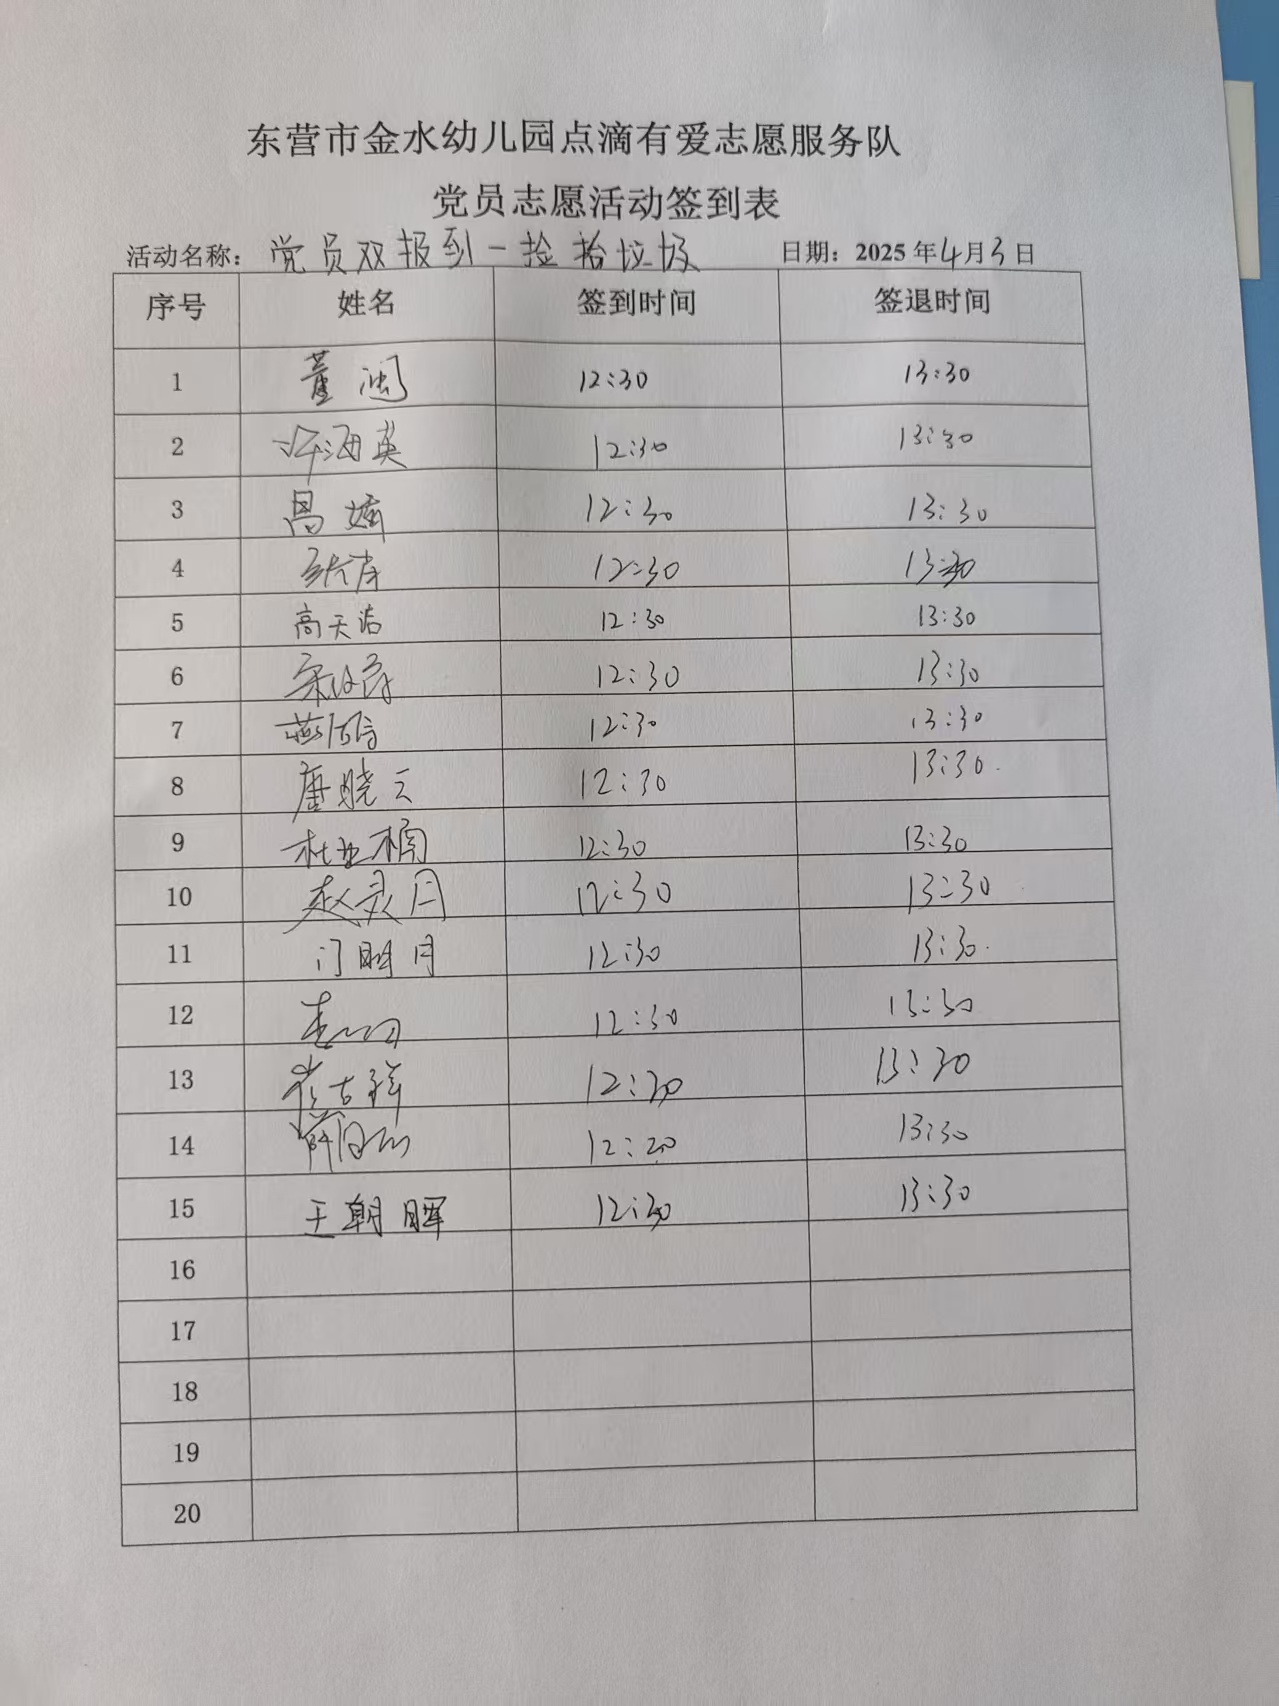 东营市金水幼儿园点滴有爱志愿服务队
党员志愿活动签到表
活动名称：党员双报到一捡拾垃圾 日期：2025年4月3日
序号 姓名 签到时间 签退时间
1 董 12:30 13:30
2 许海英 12:30 13:30
3 12:30 13:30
4 12:30 13:30
5 高天洁 12:30 13:30
6 12:30 13:30
7 12:30 13:30
8 唐晓云 12:30 13:30
9 杜亚楠 12:30 13:30
10 赵灵月 12:30 13:30
11 门明月 12:30 13:30
12 12:30 13:30
13 崔吉祥 12:30 13:30
14 12:20 13:30
15 王朝晖 12:30 13:30
16
17
18
19
20